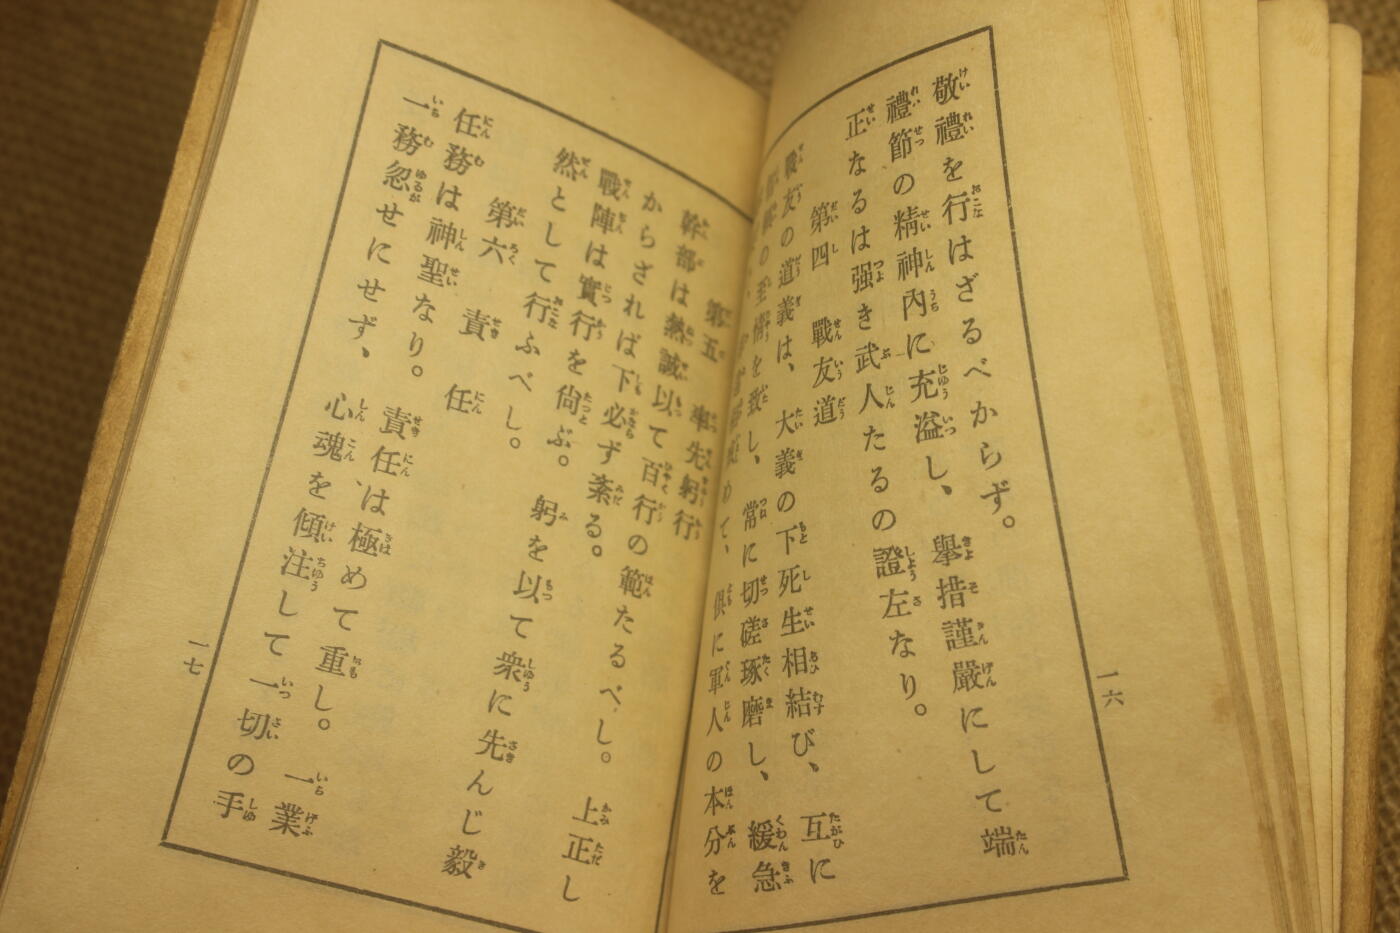 敬禮を行はざるべからず。
禮節の精神內に充溢し、擧措謹嚴にして端
正なるは强き武人たるの證左なり。
第四 戰友道
戰友の道義は、大義の下死生相結び、互に
の至情を致し、常に切磋琢磨し、緩急
めて、俱に軍人の本分を
一六
第五 率先躬行
幹部は熱誠以て百行の範たるべし。上正し
からざれば下必ず紊る。
戰陣は實行を尙ぶ。躬を以て衆に先んじ毅
然として行ふべし。
第六 責任
任務は神聖なり。責任は極めて重し。一業
一務忽せにせず、心魂を傾注して一切の手
一七